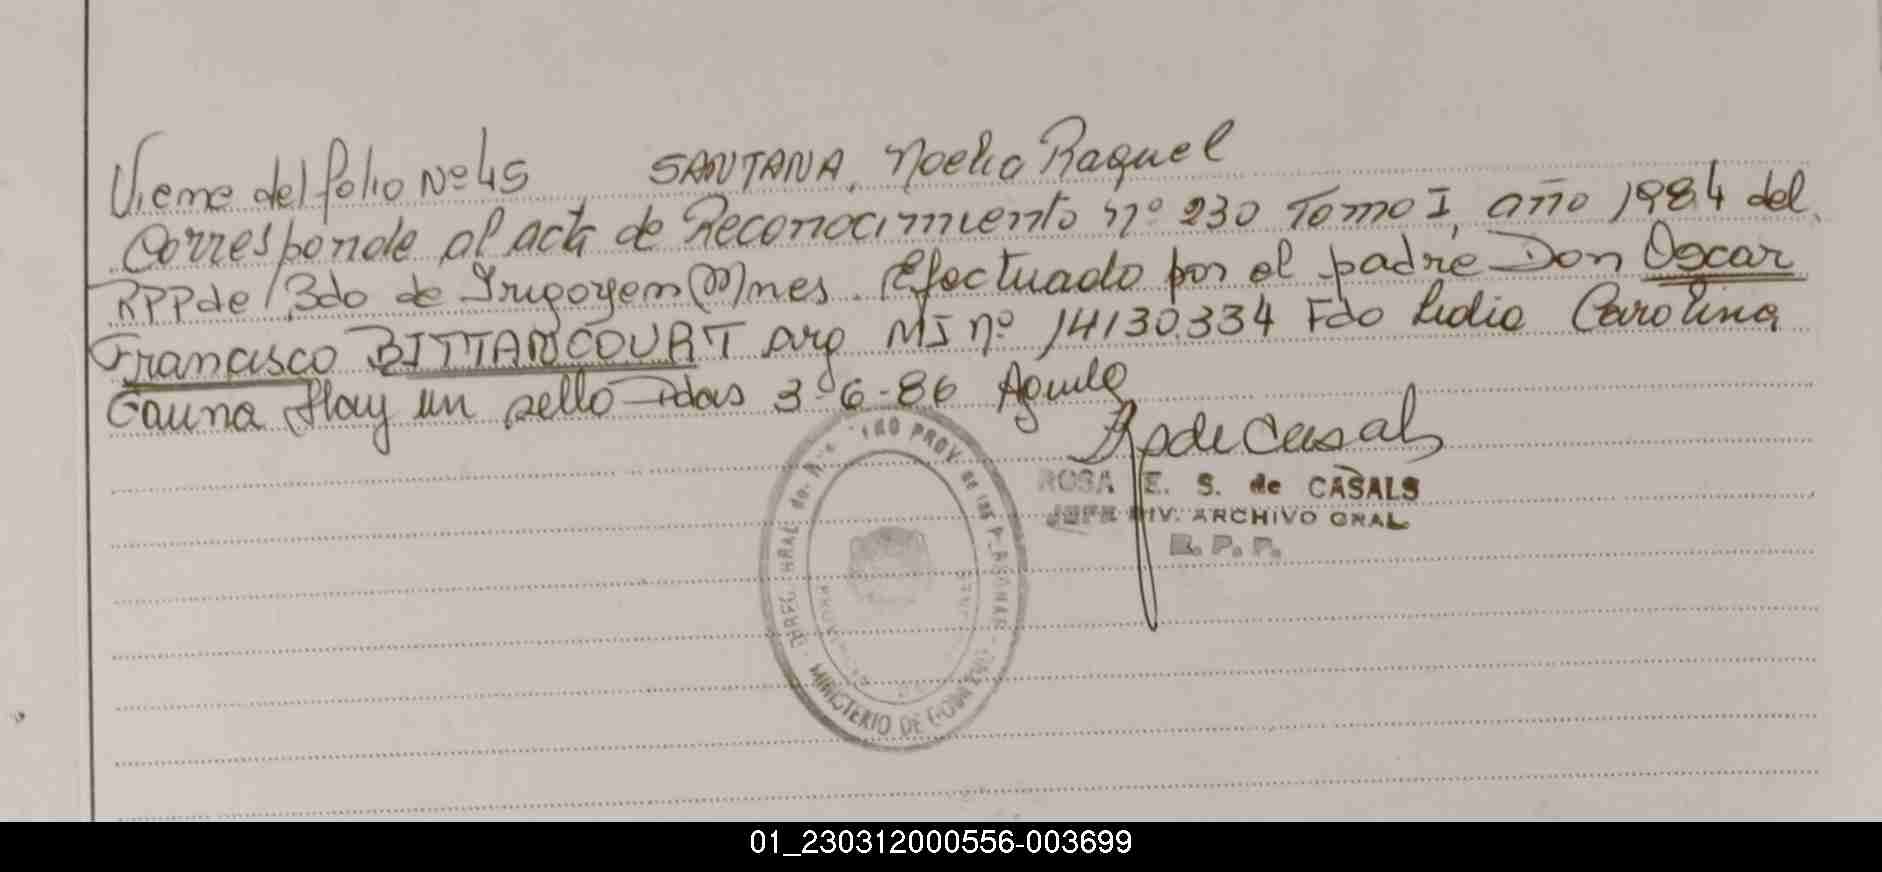 Viene del folio Nº 45 SANTANA, Noelia Raquel
Corresponde al acta de Reconocimiento nº 230 Tomo I, año 1984 del
RPP de Bdo de Irigoyen (M)nes. Efectuado por el padre Don Oscar
Francisco BITTANCOURT arg MI nº 14130.334 Fdo Lidia Carolina
Gauna Hay un sello Pdas 3-6-86 Aguila
de Casals
ROSA E. S. de CASALS
JEFE DIV. ARCHIVO GRAL.
R. P. P.
PROV. de las PERSONAS
MINISTERIO DE GOBIERNO
01_230312000556-003699